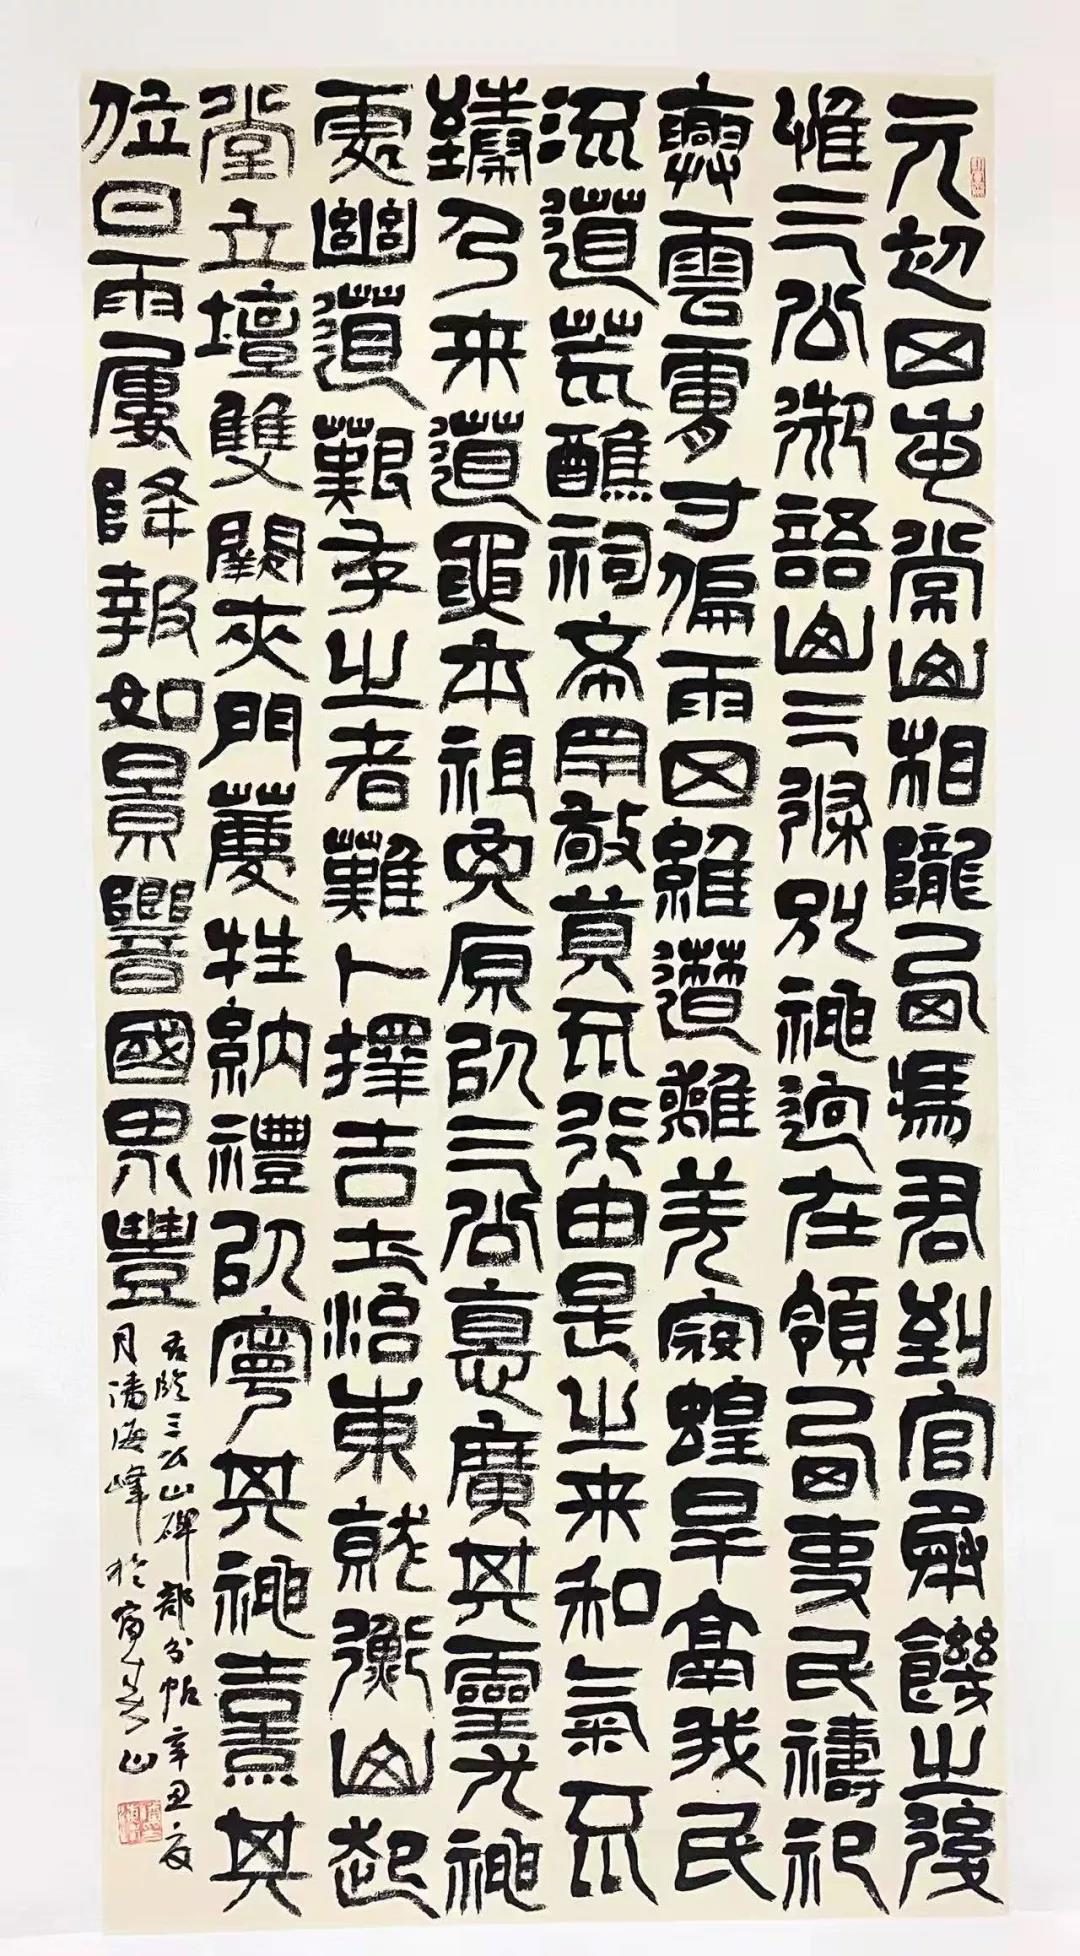 元初四年常山相隴西馮君到官承饑之後
惟三公御語山三條別神迥在領西吏民禱祀
興雲膚寸徧雨四維遭離羌寇蝗旱鬲我民
流道荒醮祠希罕敬奠不行由是之來和氣不
臻乃來道要本祖其原以三公德廣其靈尤神
處幽道艱存之者難卜擇吉土治東就衡山起
堂立壇雙闕夾門薦牲納禮以寧其神熹其
位甘雨屢降報如景響國界豐
右臨三公山碑部分帖辛丑夏
月潘海峰於山